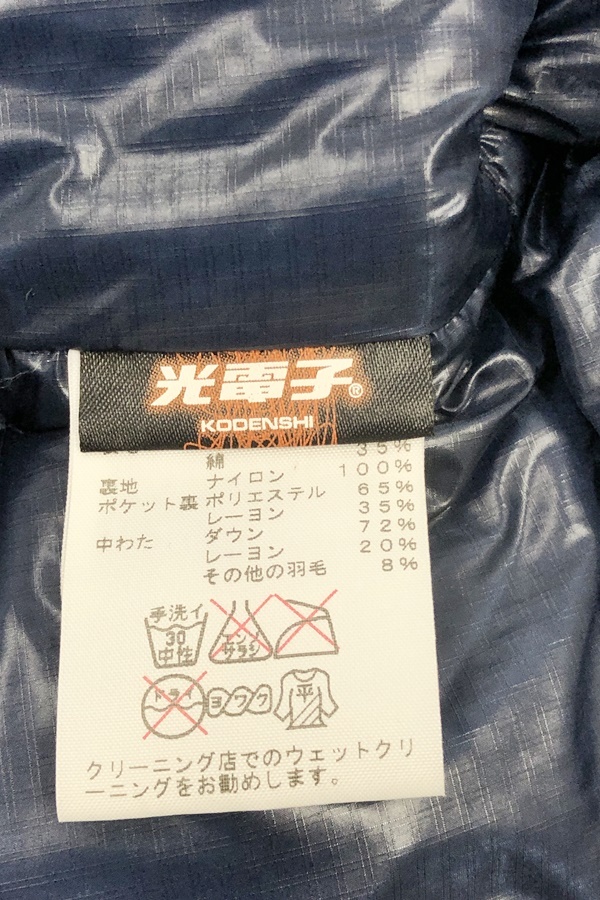 光電子®
KODENSHI
綿 35%
裏地 ナイロン 100%
ポケット裏 ポリエステル 65%
レーヨン 35%
中わた ダウン 72%
レーヨン 20%
その他の羽毛 8%
手洗イ
30
中性
エンソ
サラシ
ドライ
ヨワク
平
クリーニング店でのウェットクリ
ーニングをお勧めします。